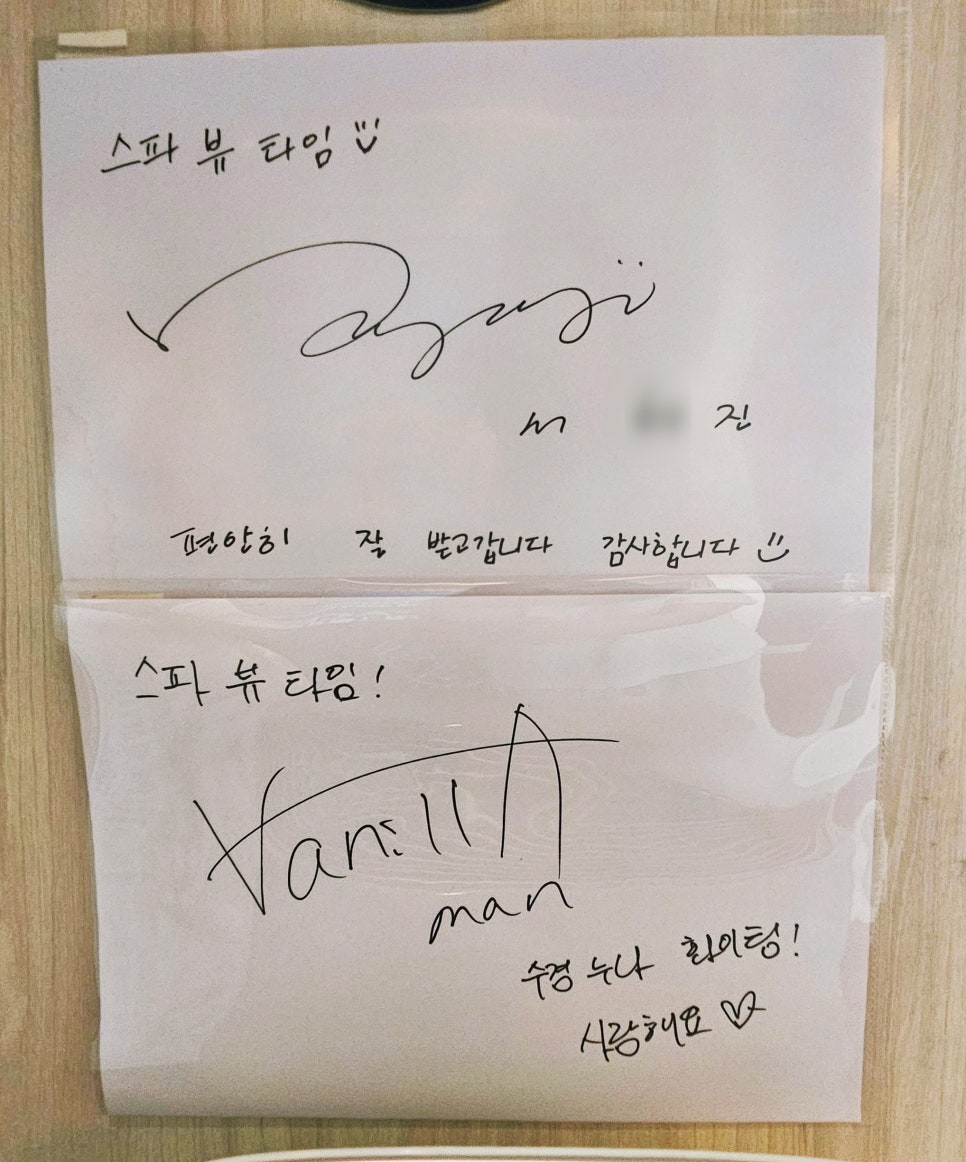 스파 뷰 타임
진
편안히 잘 받고갑니다 감사합니다
스파 뷰 타임!
Vanilla
man
수경 누나 화이팅!
사랑해요 ♡